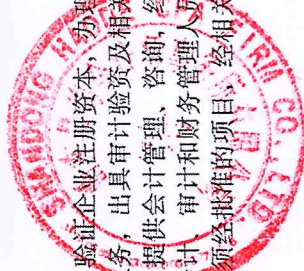 验证企业注册资本，办理
务，出具审计验资及相关
提供会计管理、咨询，经
计 审计和财务管理人员
须经批准的项目，经相关
SHANDONG
CO., LTD.